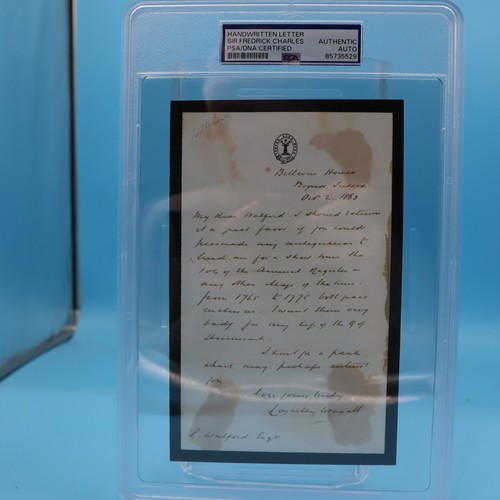 HANDWRITTEN LETTER
SIR FREDRICK CHARLES
PSA/DNA CERTIFIED
AUTHENTIC
AUTO
85735529
Bellevue House
Bognor, Sussex
Oct. 2. 1863
My dear Walford. I should esteem
it a great favor if you could
persuade any antiquarian to
lend me for a short time the
vols of the Annual Register or
any other Mags of the time
from 1765 to 1775 both years
inclusive. I want them very
badly for my
I shut up a
which may perhaps interest
you
Yours very truly
Lascelles Wraxall
E. Walford Esqr